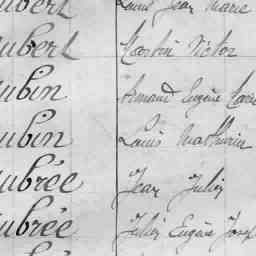 ubert Louis Jean Marie
ubert Martin Victor
ubin Armand Eugène
ubin Louis Mathurin
ubrée Jean Julien
ubrée Julien Eugène Josep